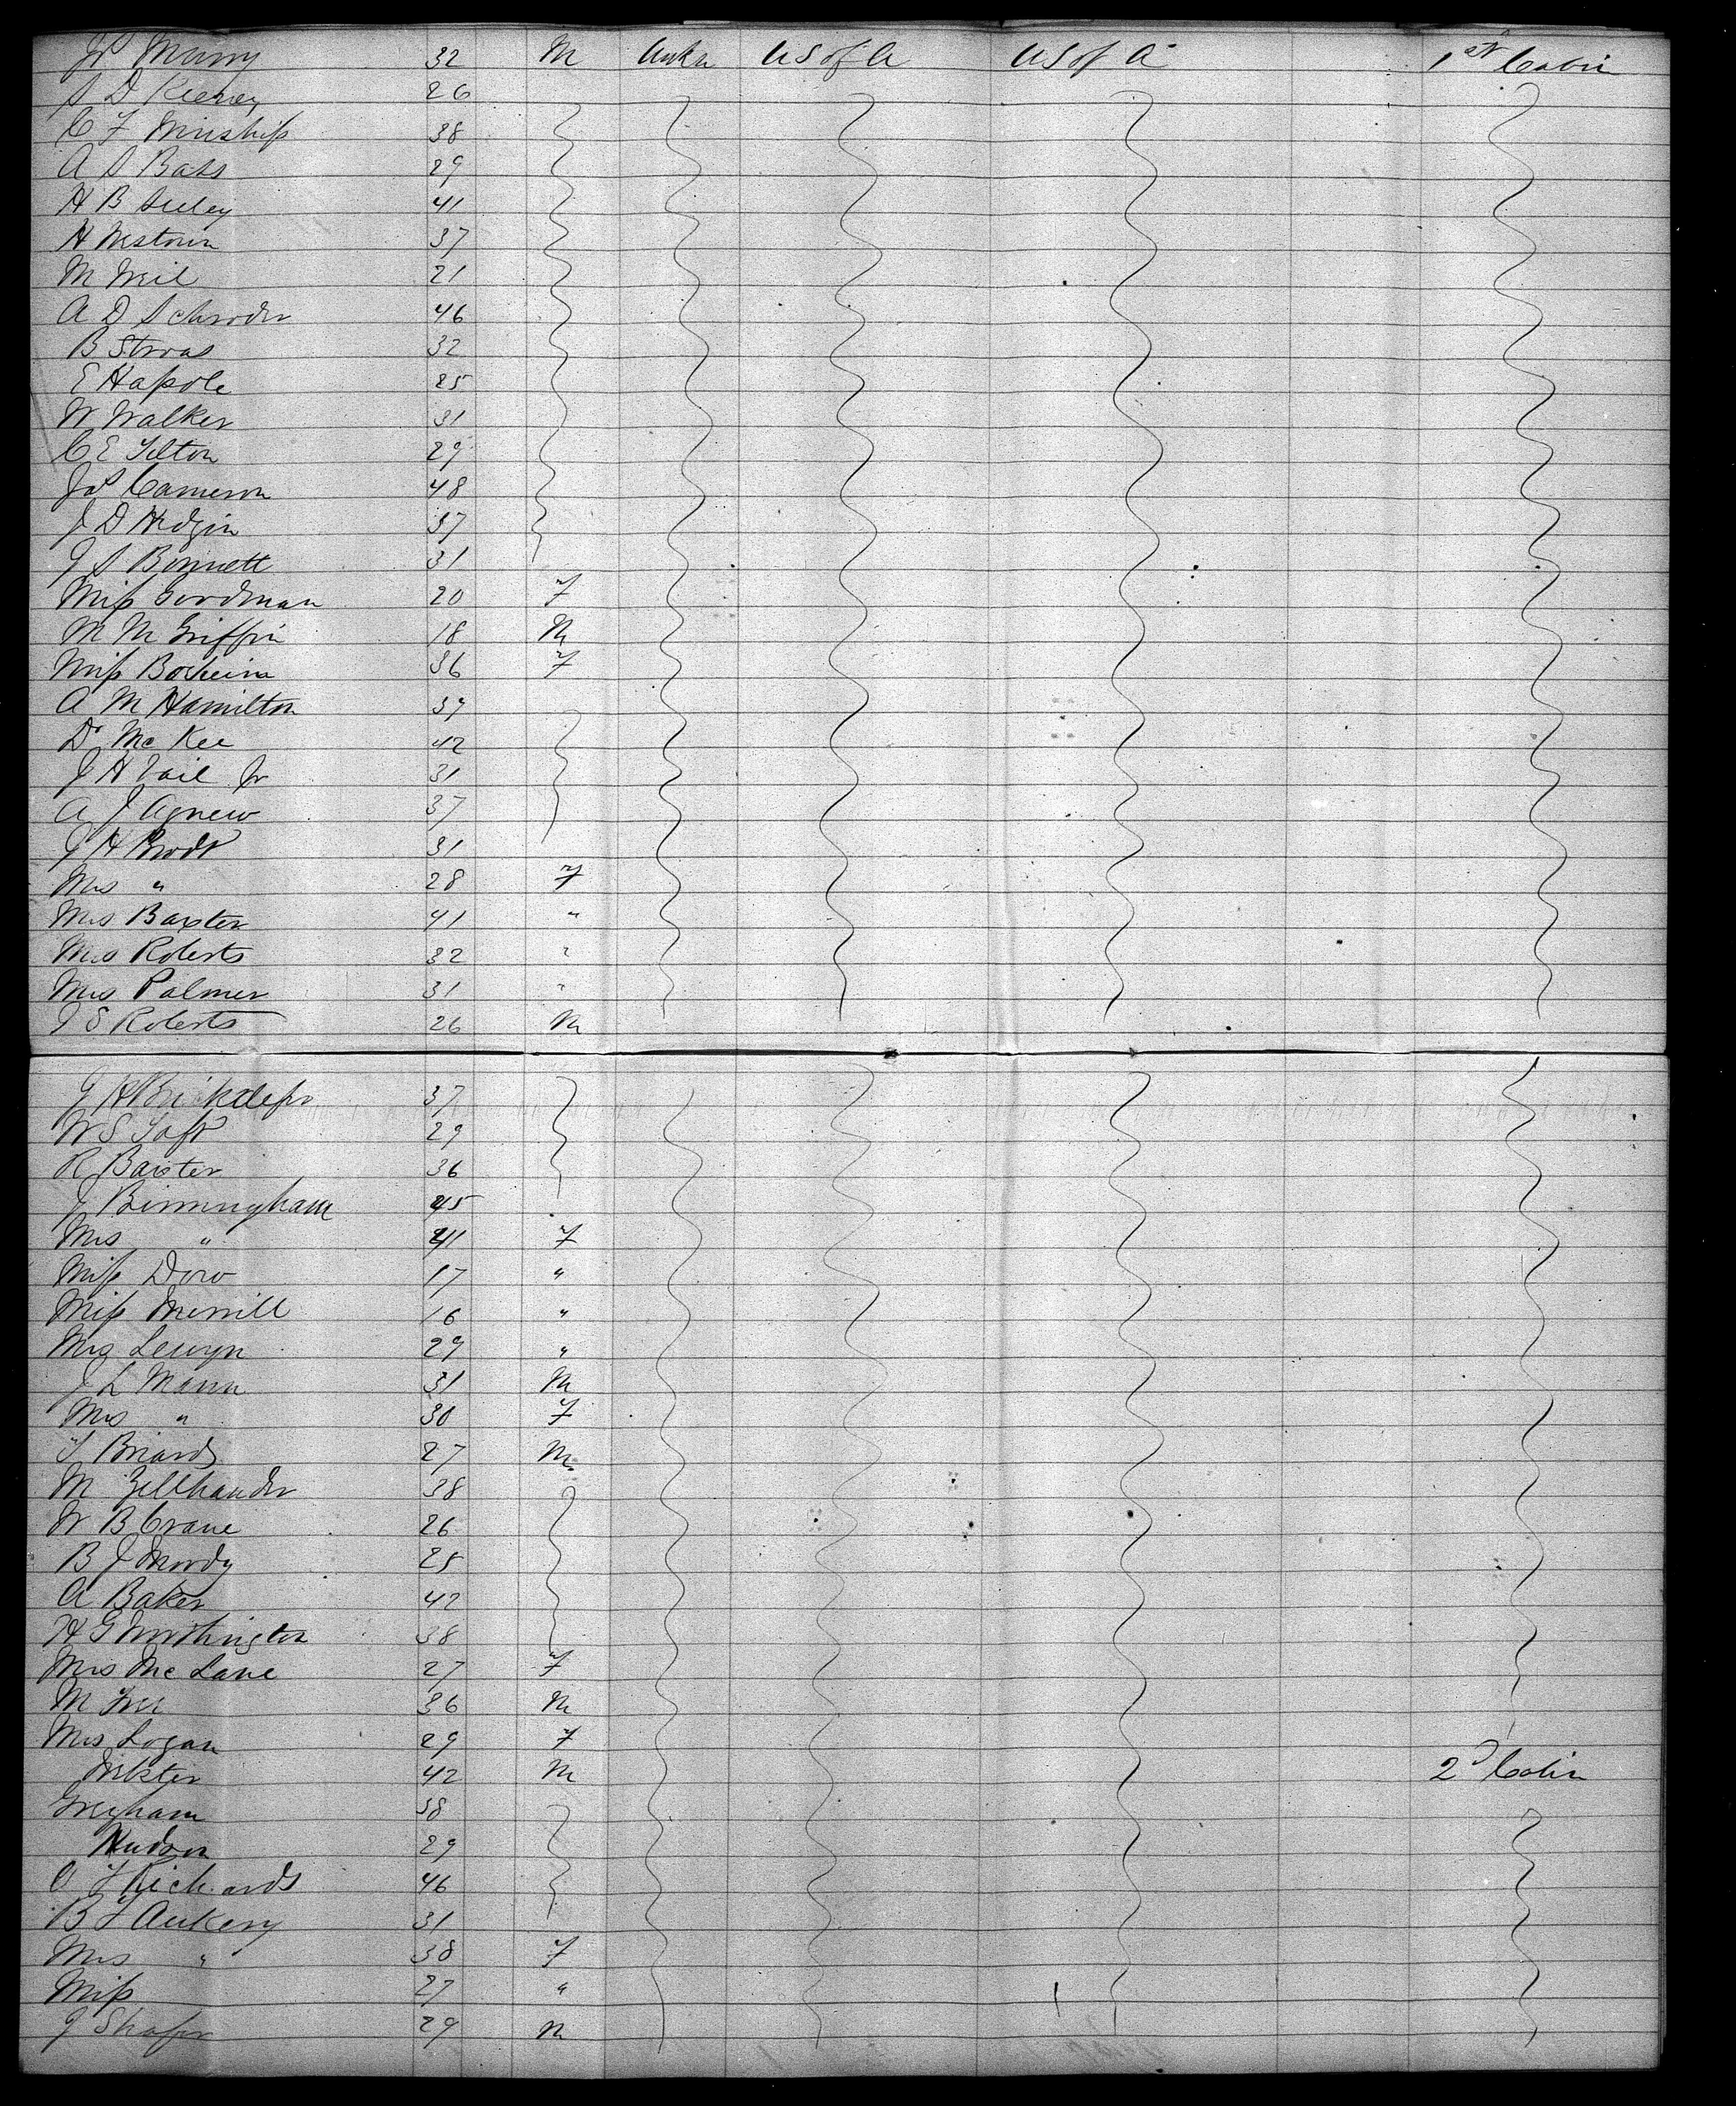 Murry 32 M Unkn U S of A U S of A 1st Cabin
S D Keeney 26
C F Winship 38
A S Bass 29
H B Seeley 41
H Westown 37
M Weil 21
A D Schroder 46
B Stroas 32
E Hassole 25
W Walker 31
C E Tilton 29
Jas Cameron 48
J D Hedgin 37
J S Bonnett 31
Miss Goodman 20 F
M M Griffin 18 M
Miss 36 F
A M Hamilton 39
Dr McKee 42
J H Vail Jr 31
A J Agnew 37
J H Brodt 31
Mrs " 28 F
Mrs Baxter 41 "
Mrs Roberts 32 "
Mrs Palmer 31 "
J S Roberts 26 M
J H 37
W S Taft 29
R Baxter 36
J Birmingham 45
Mrs " 41 F
Miss Dow 17 "
Miss Merrill 16 "
Mrs 29 "
J L Mann 31 M
Mrs " 30 F
T Briards 27 M
M Zellhauder 38
W B Crane 26
B J Moody 25
A Baker 42
H G Worthington 38
Mrs McLane 27 F
M 36 M
Mrs Logan 29 F
Webster 42 M 2d Cabin
Gregham 38
Hudson 29
O T Richards 46
B T Aukeny 31
Mrs " 38 F
Miss 27 "
J Shafer 29 M